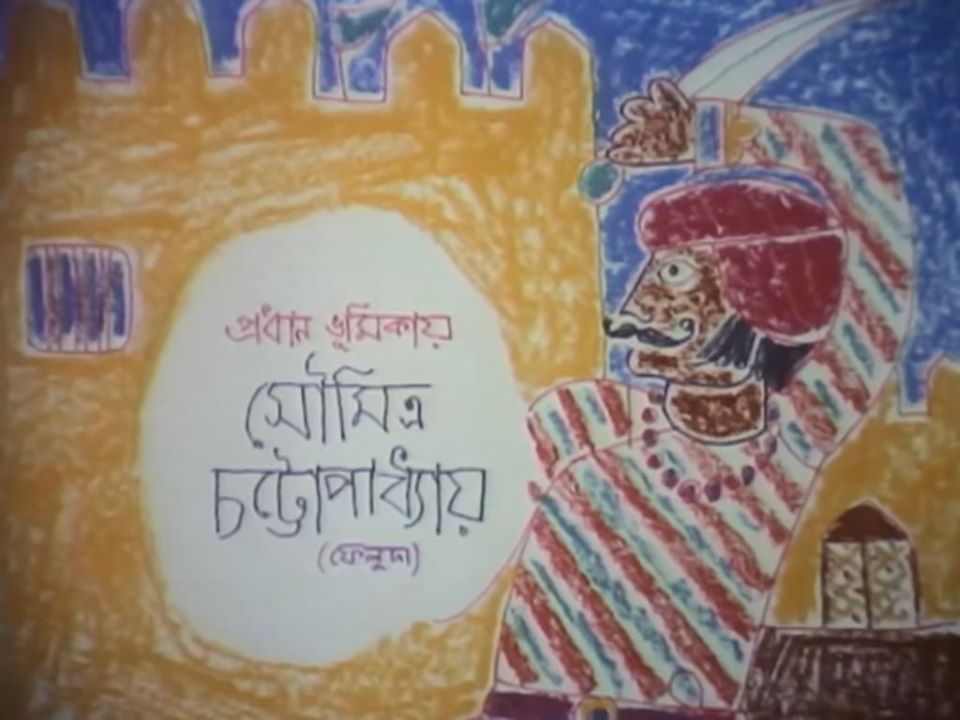 প্রধান ভূমিকায়
সৌমিত্র
চট্টোপাধ্যায়
(ফেলুদা)